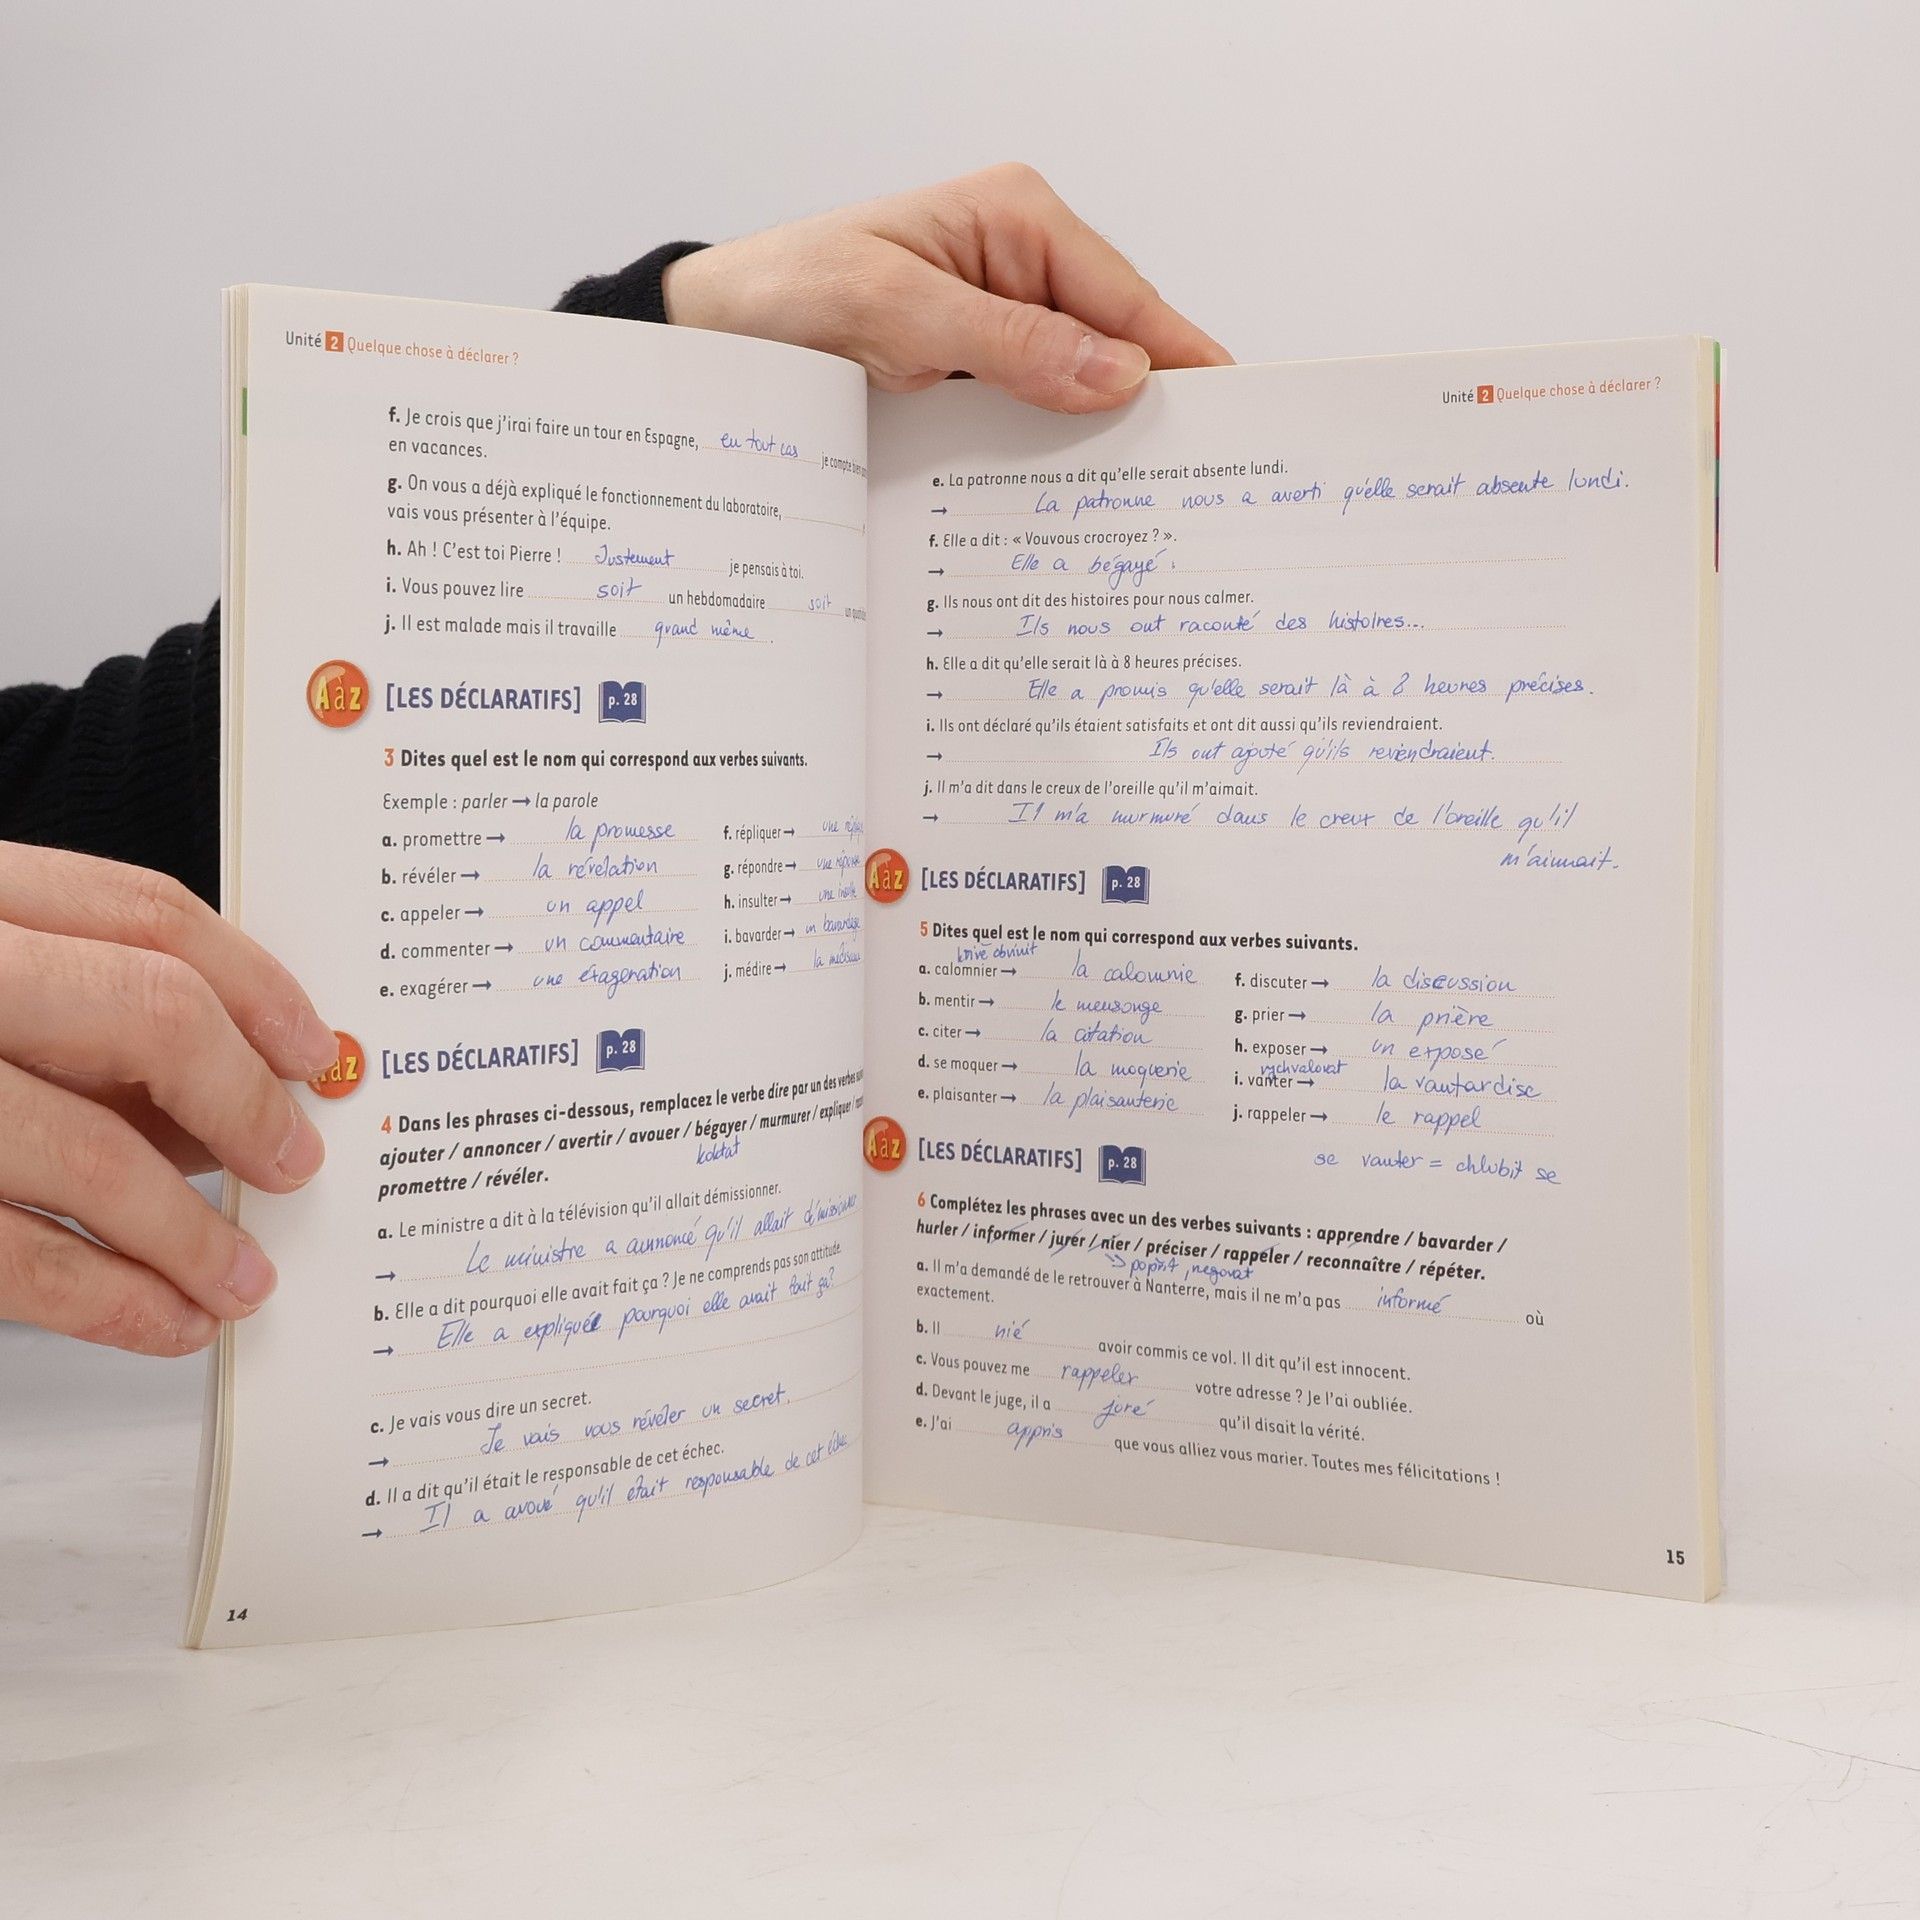 Unité 2 Quelque chose à déclarer ?
f. Je crois que j'irai faire un tour en Espagne, en tout cas je compte
en vacances.
g. On vous a déjà expliqué le fonctionnement du laboratoire,
vais vous présenter à l'équipe.
h. Ah ! C'est toi Pierre ! Justement je pensais à toi.
i. Vous pouvez lire soit un hebdomadaire soit
j. Il est malade mais il travaille quand même .
AàZ [LES DÉCLARATIFS] p. 28
3 Dites quel est le nom qui correspond aux verbes suivants.
Exemple : parler → la parole
a. promettre → la promesse
b. révéler → la révélation
c. appeler → un appel
d. commenter → un commentaire
e. exagérer → une éxageration
f. répliquer → une
g. répondre → une réponse
h. insulter → une
i. bavarder → un bavardage
j. médire → la
AàZ [LES DÉCLARATIFS] p. 28
4 Dans les phrases ci-dessous, remplacez le verbe dire par un des verbes
ajouter / annoncer / avertir / avouer / bégayer / murmurer / expliquer /
koktat
promettre / révéler.
a. Le ministre a dit à la télévision qu'il allait démissionner.
→ Le ministre a annoncé qu'il allait démissionner
b. Elle a dit pourquoi elle avait fait ça ? Je ne comprends pas son attitude.
→ Elle a expliqué pourquoi elle avait fait ça?
c. Je vais vous dire un secret.
→ Je vais vous révéler un secret.
d. Il a dit qu'il était le responsable de cet échec.
→ Il a avoué qu'il était responsable de cet échec
14
Unité 2 Quelque chose à déclarer ?
e. La patronne nous a dit qu'elle serait absente lundi.
→ La patronne nous a averti qu'elle serait absente lundi.
f. Elle a dit : « Vouvous crocroyez ? ».
→ Elle a bégayé :
g. Ils nous ont dit des histoires pour nous calmer.
→ Ils nous ont raconté des histoires...
h. Elle a dit qu'elle serait là à 8 heures précises.
→ Elle a promis qu'elle serait là à 8 heures précises.
i. Ils ont déclaré qu'ils étaient satisfaits et ont dit aussi qu'ils reviendraient.
→ Ils ont ajouté qu'ils reviendraient.
j. Il m'a dit dans le creux de l'oreille qu'il m'aimait.
→ Il m'a murmuré dans le creux de l'oreille qu'il
m'aimait.
AàZ [LES DÉCLARATIFS] p. 28
5 Dites quel est le nom qui correspond aux verbes suivants.
křivě obvinit
a. calomnier → la calomnie
b. mentir → le mensonge
c. citer → la citation
d. se moquer → la moquerie
e. plaisanter → la plaisanterie
f. discuter → la discussion
g. prier → la prière
h. exposer → un exposé
vychvalovat
i. vanter → la vantardise
j. rappeler → le rappel
se vanter = chlubit se
AàZ [LES DÉCLARATIFS] p. 28
6 Complétez les phrases avec un des verbes suivants : apprendre / bavarder /
hurler / informer / jurer / nier / préciser / rappeler / reconnaître / répéter.
popřít, negovat
a. Il m'a demandé de le retrouver à Nanterre, mais il ne m'a pas informé où
exactement.
b. Il nié avoir commis ce vol. Il dit qu'il est innocent.
c. Vous pouvez me rappeler votre adresse ? Je l'ai oubliée.
d. Devant le juge, il a juré qu'il disait la vérité.
e. J'ai appris que vous alliez vous marier. Toutes mes félicitations !
15